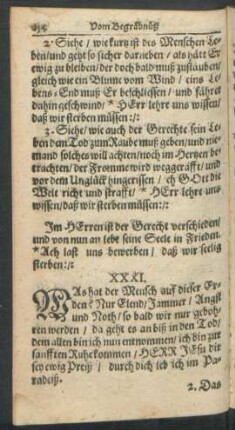 Vom Begräbnüß
2. Siehe / wie kurtz ist des Menschen Le-
ben / und geht so sicher darneben / als hätt Er
ewig zu bleiben / der doch bald muß zustauben /
gleich wie ein Blume vom Wind / eins Le-
bens-End muß Er beschliessen / und fähret
dahin geschwind / * HErr lehre uns wissen /
daß wir sterben müssen :/:
3. Siehe / wie auch der Gerechte sein Le-
ben dem Tod zum Raube muß geben / und nie-
mand solches will achten / noch im Hertzen be-
trachten / der Fromme wird weggerafft / und
vor dem Unglück hingerissen / eh GOtt die
Welt richt und strafft / * HErr lehre uns
wissen / daß wir sterben müssen :/:
Im HErren ist der Gerecht verschieden /
und von nun an lebt seine Seele in Frieden.
* Ach last uns bewerben / daß wir seelig
sterben :/:
XXXI.
WAs hat der Mensch auf dieser Er-
den? Nur Elend / Jammer / Angst
und Noth / so bald wir nur geboh-
ren werden / da geht es an biß in den Tod /
dem allen bin ich nun entnommen / ich bin zur
sanfften Ruhe kommen / HERR JEsu dir
sey ewig Preiß / durch dich ich ich im Pa-
radeiß.
2. Das